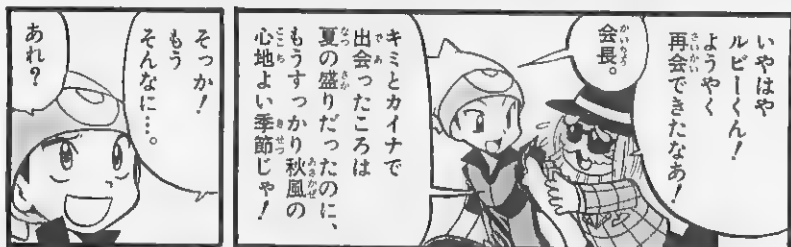 いやはや
ルビーくん！
ようやく
再会できたなあ！
会長。
キミとカイナで
出会ったころは
夏の盛りだったのに、
もうすっかり秋風の
心地よい季節じゃ！
そっか！
もう
そんなに…。
あれ？